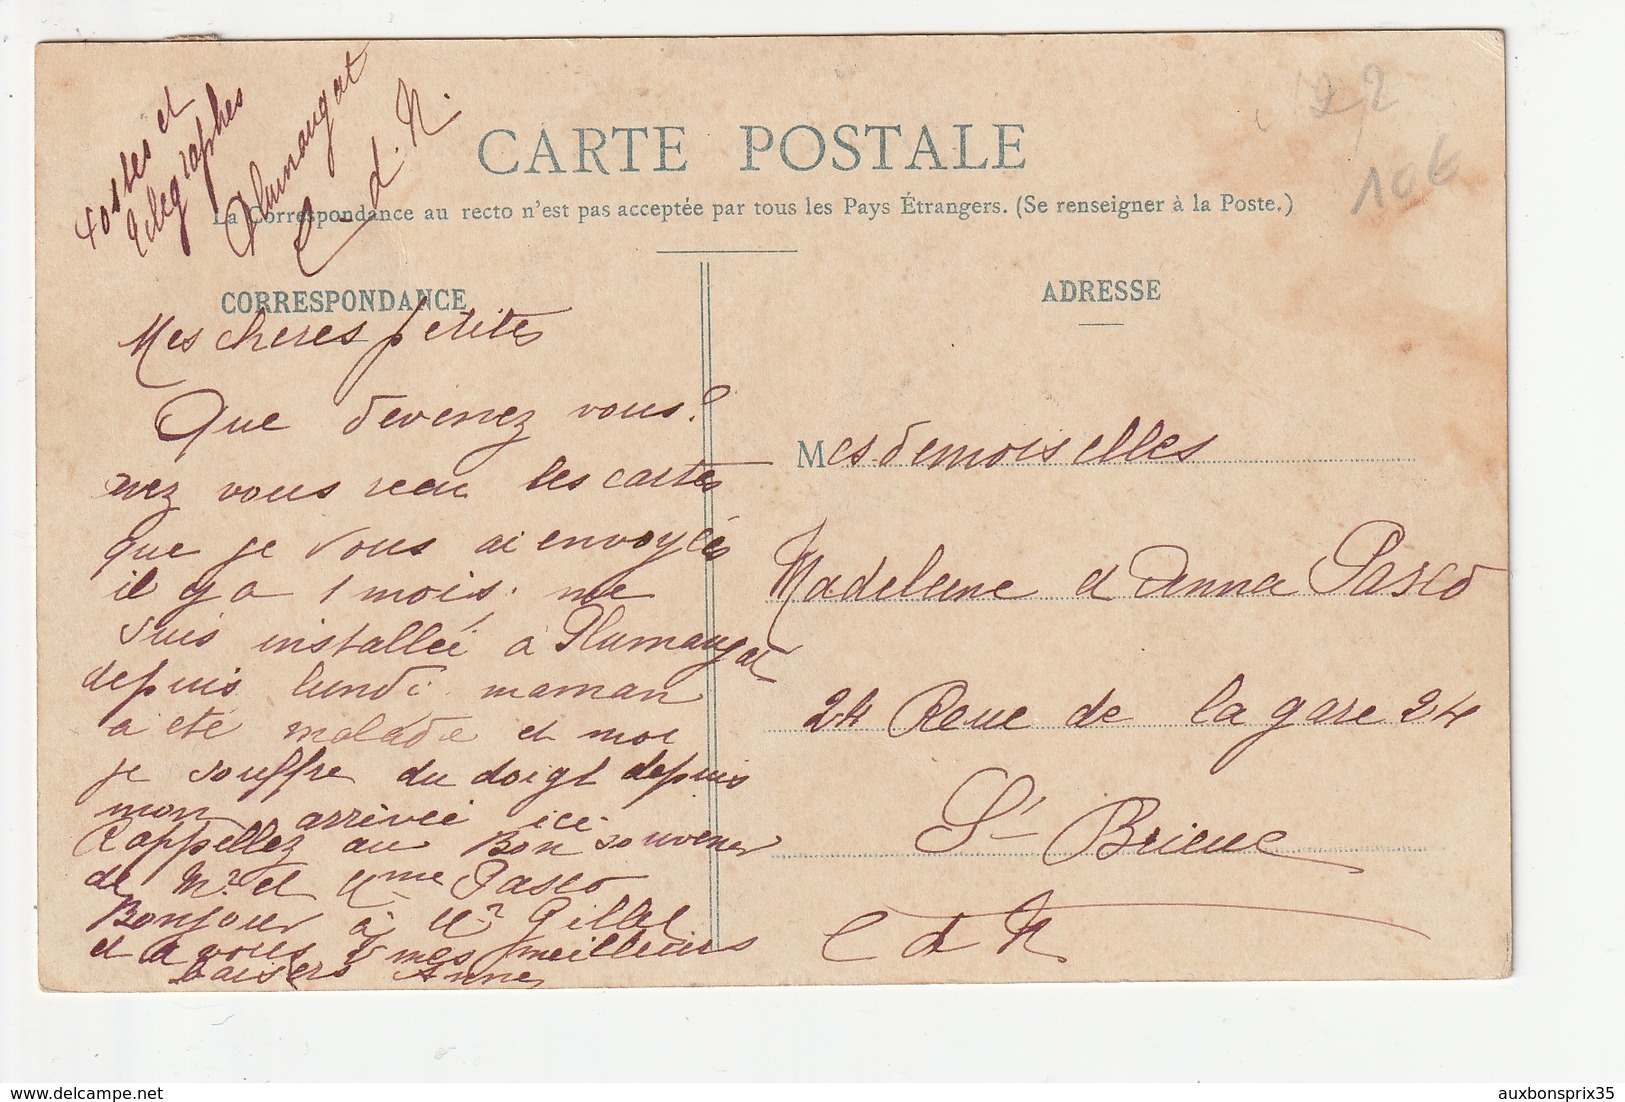 Postes et
Telegraphes
Plumaugat
C-d.N.
22
10€
CARTE POSTALE
La Correspondance au recto n'est pas acceptée par tous les Pays Étrangers. (Se renseigner à la Poste.)
CORRESPONDANCE
Mes cheres petites
Que devenez vous?
avez vous recu les cartes
que je vous ai envoyées
il y a 1 mois. me
suis installée à Plumaugat
depuis lundi. maman
a été malade et moi
je souffre du doigt depuis
mon arrivée ici.
Rappellez au Bon souvenir
de Mr et Mme Pasco
Bonjour à Mr Gillet
et a vous mes meilleurs
baisers Anne
ADRESSE
Mesdemoiselles
Madeleine et Anna Pasco
24 Reue de la gare 24
St-Brieuc
C d N
delcampe.net
auxbonsprix35